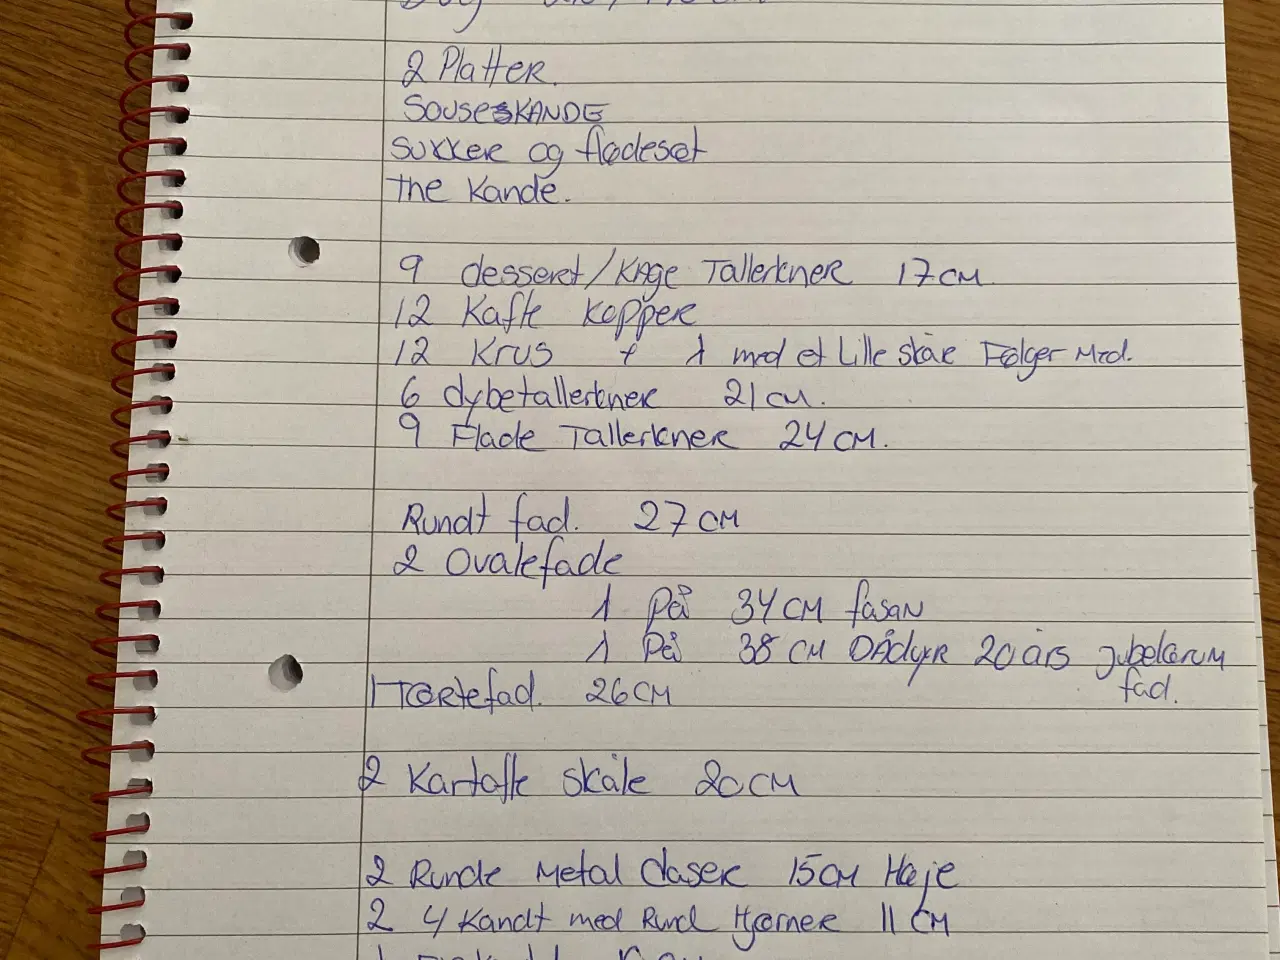 2 Platter.
SOUSESKANDE
Sukker og flødesæt
the Kande.
9 desseret/Kage Tallerkner 17 cm.
12 Kaffe Kopper
12 Krus + 1 med et Lille skår Følger Med.
6 dybetallerkner 21 cm.
9 Flade Tallerkner 24 cm.
Rundt fad. 27 cm
2 Ovalefade
1 På 34 cm fasan
1 På 38 cm DÅdyr 20 års jubelærum
fad.
1 Tærtefad. 26 cm
2 Kartoffle skåle 20 cm
2 Runde Metal daser 15 cm Høje
2 4 Kandt med Rund Hjørner 11 cm